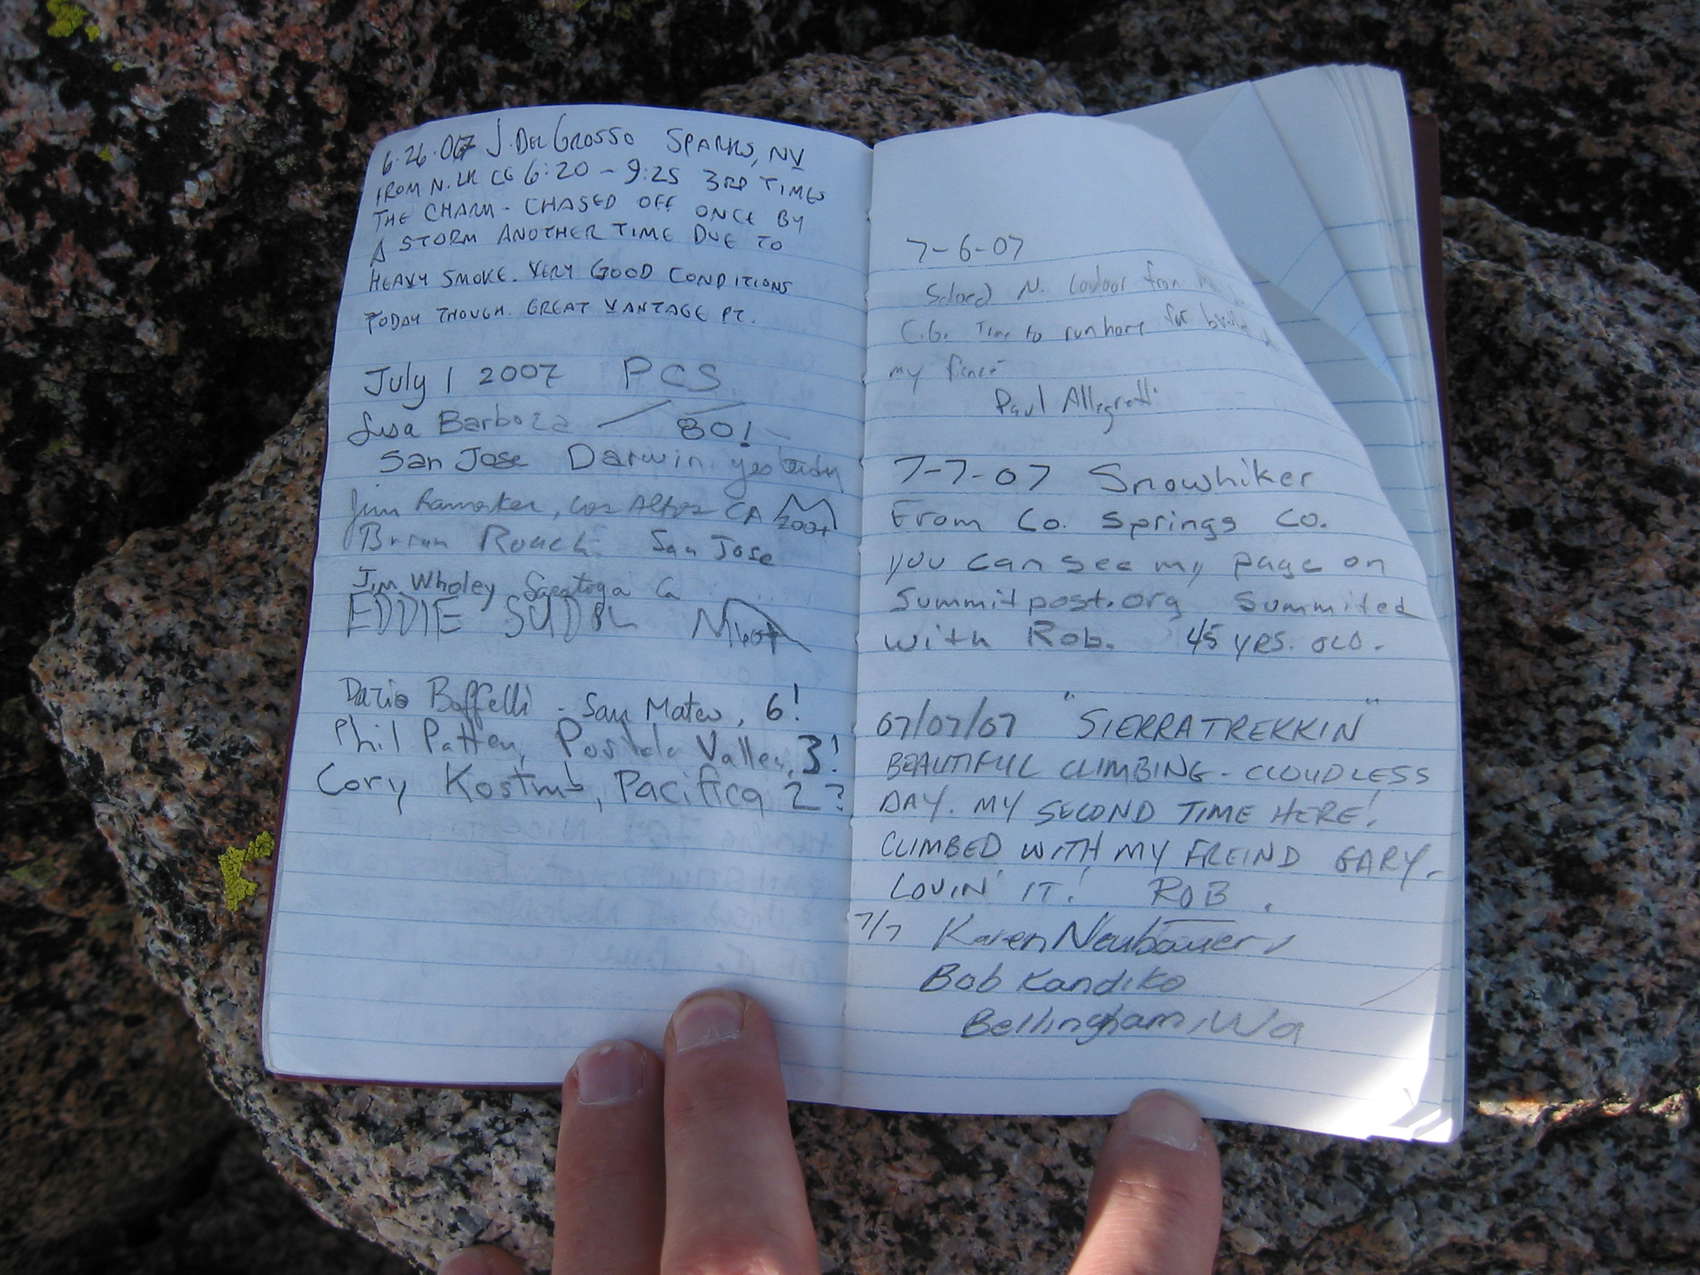 6.26.07 J. DEL GROSSO SPARKS, NV
FROM N. LK CG 6:20 - 9:25 3RD TIMES
THE CHARM - CHASED OFF ONCE BY
A STORM ANOTHER TIME DUE TO
HEAVY SMOKE. VERY GOOD CONDITIONS
TODAY THOUGH. GREAT VANTAGE PT.
July 1 2007 PCS
Lisa Barboza 80!
San Jose Darwin yesterday
Jim Ramaker, Los Altos CA 200+
Brian Roach San Jose
Jim Wholey Saratoga Ca
EDDIE
Dario Boffelli - San Mateo, 6!
Phil Patten, Portola Valley, 3!
Cory Pacifica 2?
7-6-07
Soloed N. from
C.G. Time to run home for
my
Paul
7-7-07 Snowhiker
From Co. Springs Co.
you can see my page on
Summitpost.org Summited
with Rob. 45 yrs. OLD.
07/07/07 "SIERRATREKKIN"
BEAUTIFUL CLIMBING - CLOUDLESS
DAY. MY SECOND TIME HERE!
CLIMBED WITH MY FREIND GARY.
LOVIN' IT! ROB.
7/7 Karen Neubauer,
Bob Kandiko
Bellingham, Wa